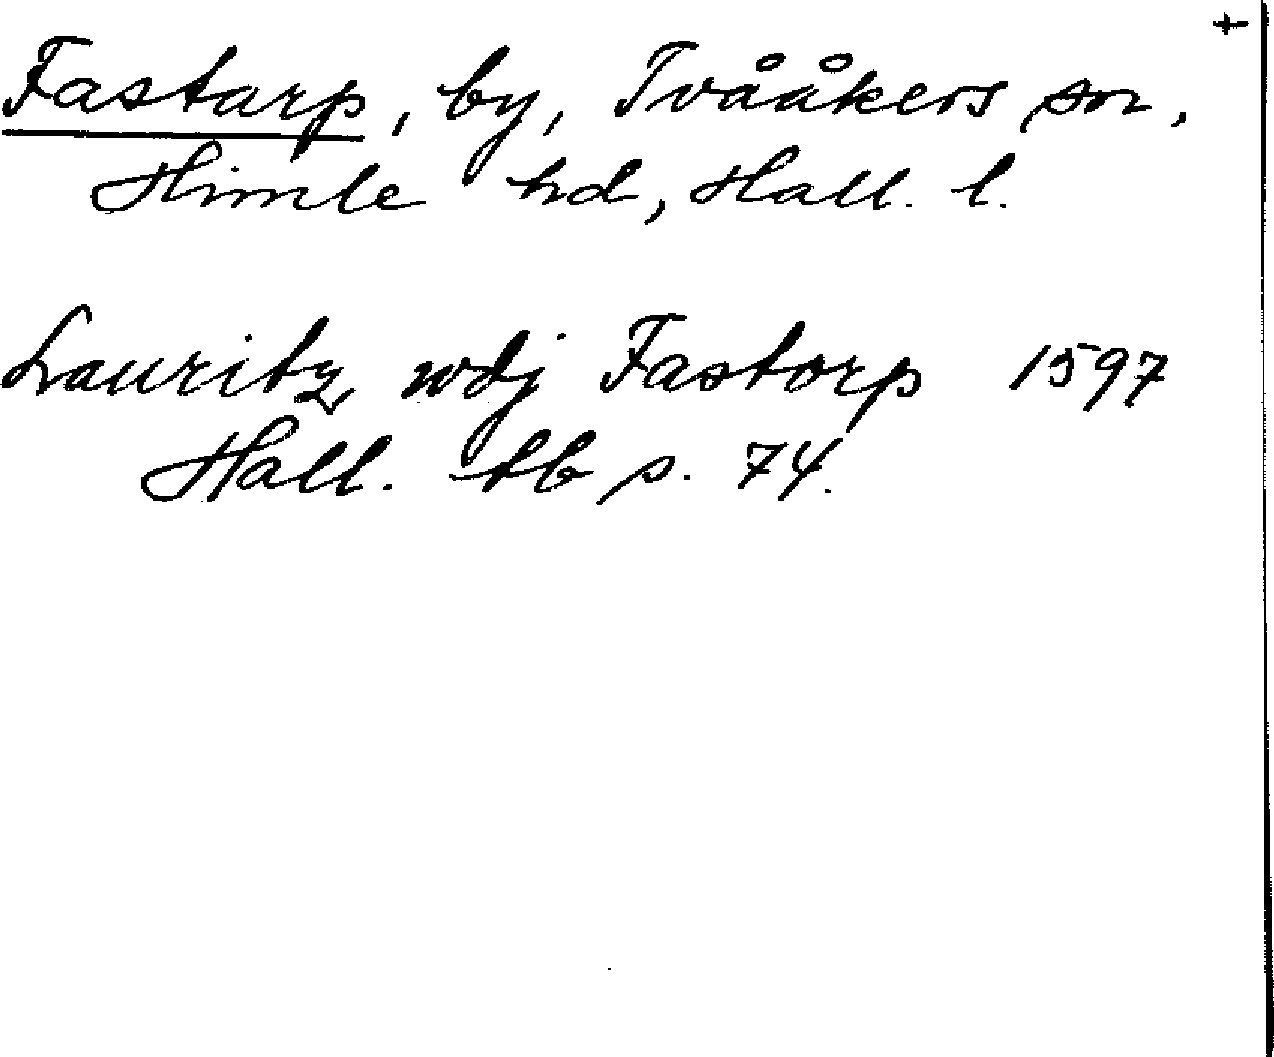 Fastarp, by, Tvååkers sn,
Himle hd, Hall. l.
Lauritz wdj Fastorp 1597
Hall. tb s. 74.